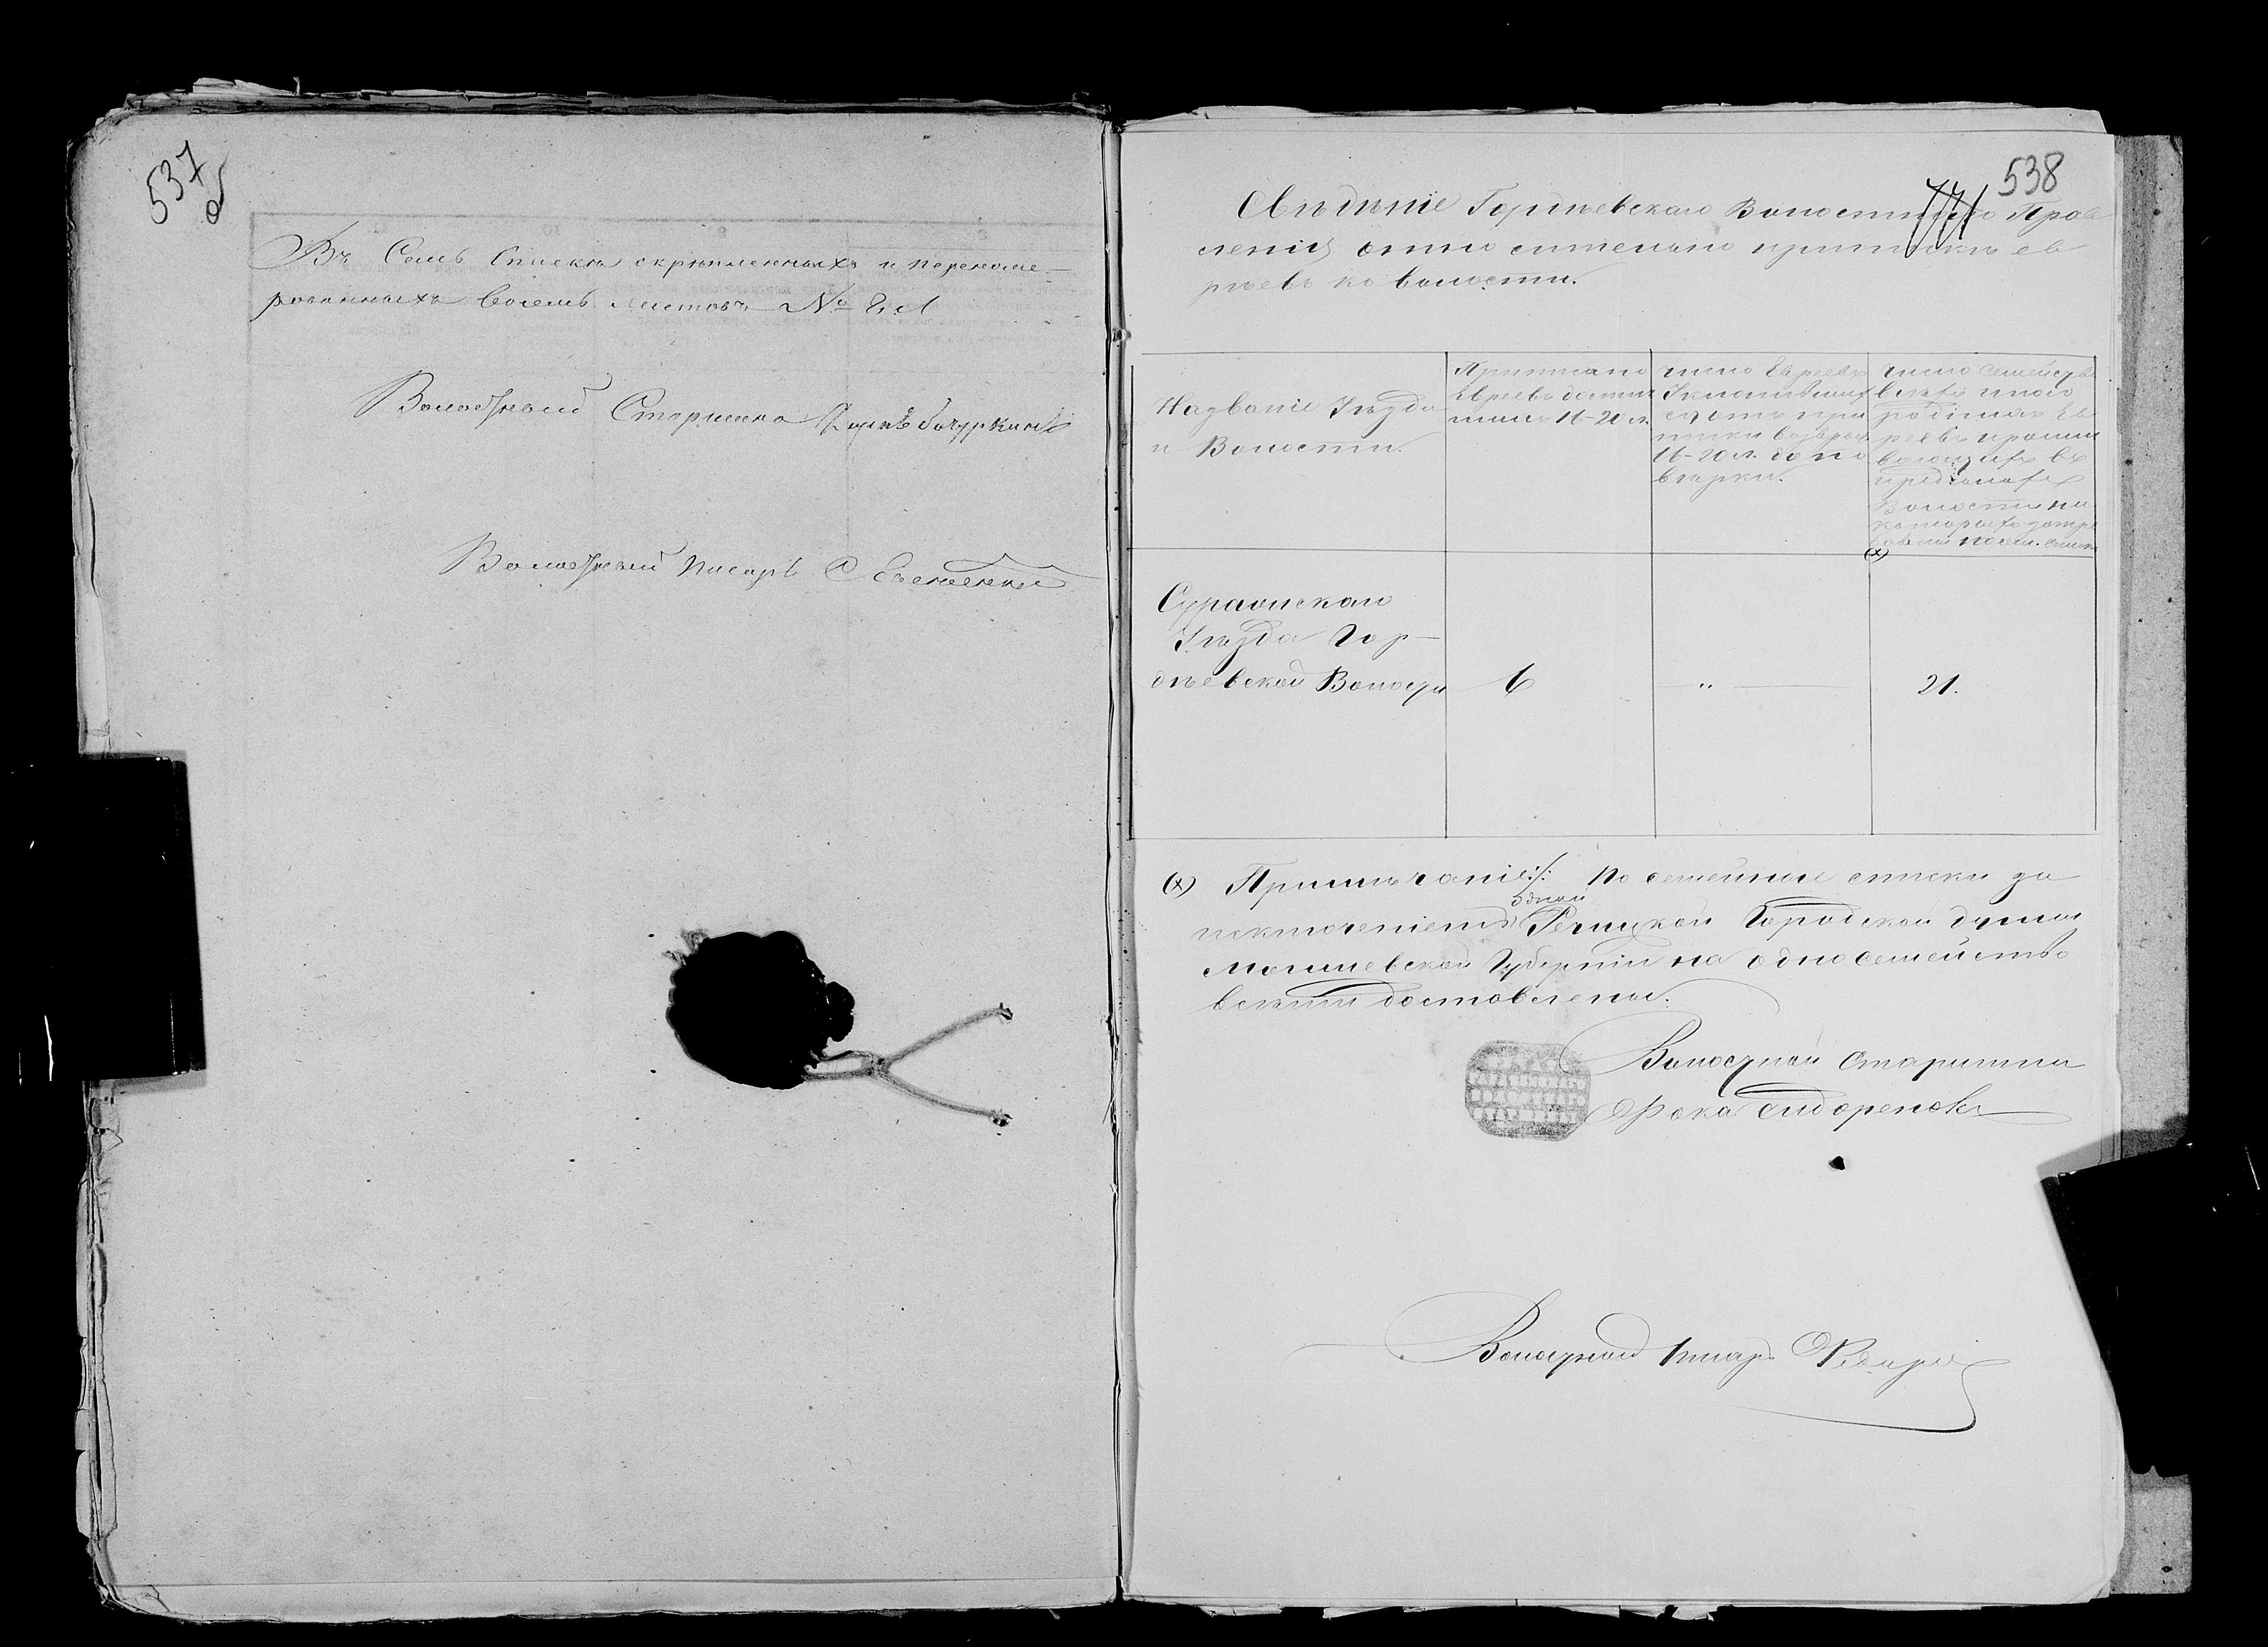 537
об
Въ Семъ Списке скрѣпленныхъ и переноме-
рованныхъ восемь листовъ № 8.й
Волостной Старшина
Волостной Писарь
538
Свѣдѣніе Гордѣевскаго Волостнаго Прав
ленія относительно приписки ев
реевъ къ волости.
Названіе Уѣзда
и Волости.
Приписано
Евреевъ достиг
шихъ 16-20 л.
число Евреевъ
Уклонившихъ
ся отъ при
писки возраст
16-20 л. до по
вѣрки.
число Семейств
всѣхъ иного
родныхъ Ев
реевъ прожи
вающихъ въ
предѣлахъ
Волости на
которыхъ затре
бованы посем. списки
(х)
Суражскаго
Уѣзда Гор-
дѣевской Волости
6
"
21.
(х) Примѣчаніе:/: По семейные списки за
одной
исключеніемъ Рѣчицкой Городской думы
Могилевской Губерніи на одно семейство
всѣми доставлены.
Волостной Старшина
Фока Сидоренокъ
Волостной писарь